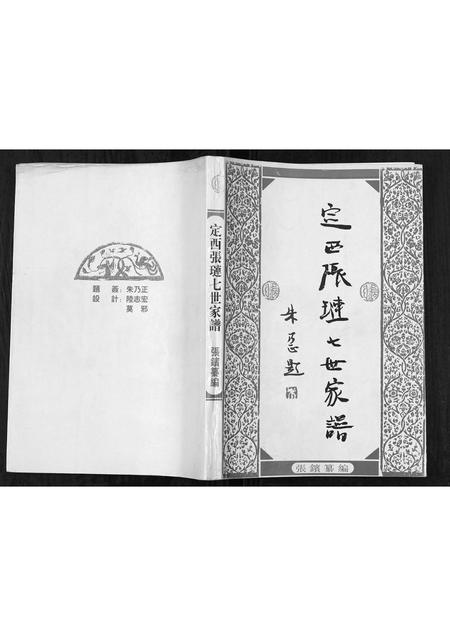 定西張璉七世家譜
朱乃正題
張鑌纂編
定西張璉七世家譜
張鑌纂編
題　簽：朱乃正
設　計：陸志宏
莫　邪